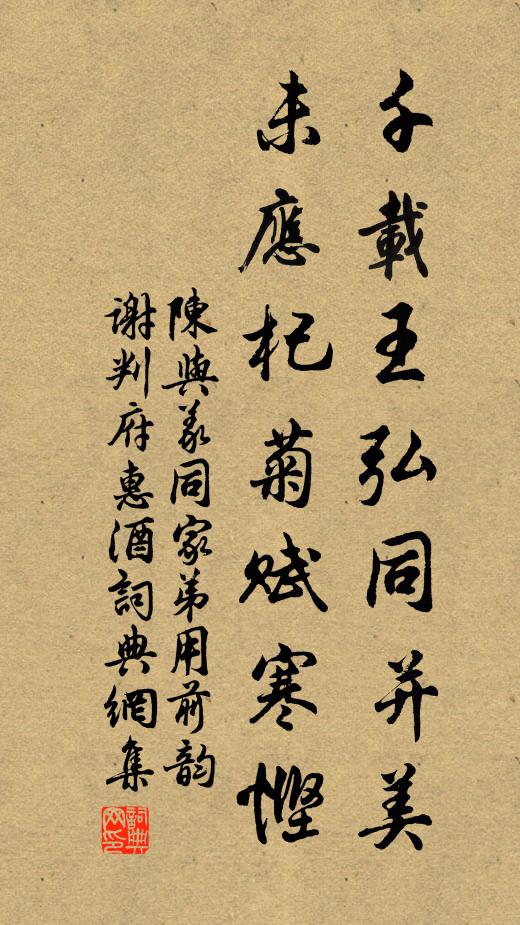 千載王弘同并美
未應杞菊賦寒慳
陳與義同家弟用前韵
謝判府惠酒詞典網集
詞典
网印